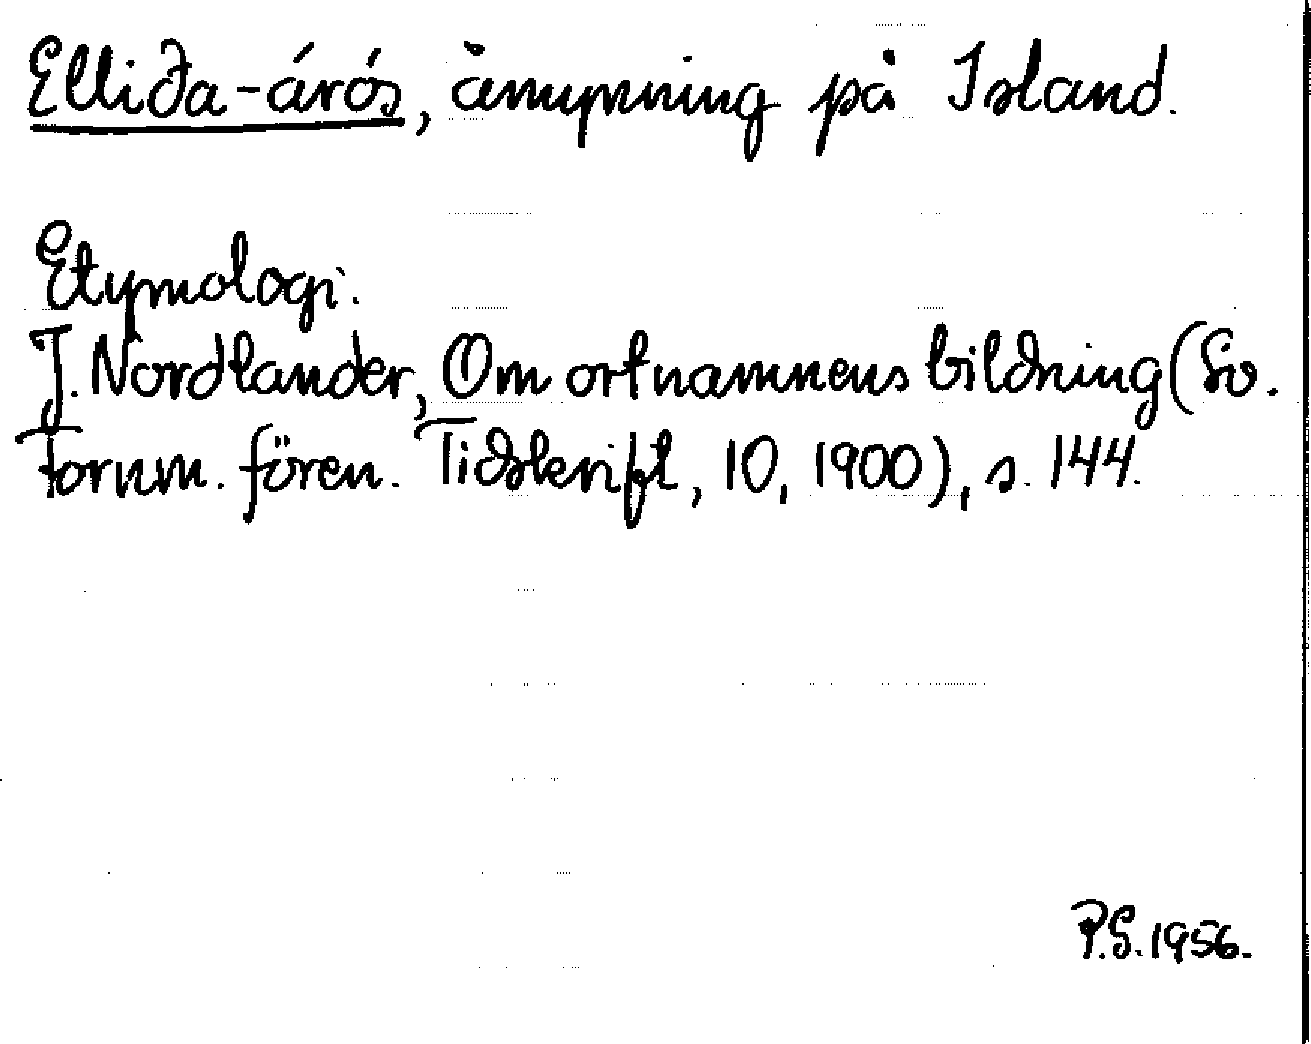 Elliða-árós, åmynning på Island.
Etymologi.
J. Nordlander, Om ortnamnens bildning (Sv.
fornm. fören. Tidskrift, 10, 1900), s. 144.
P.S. 1956.